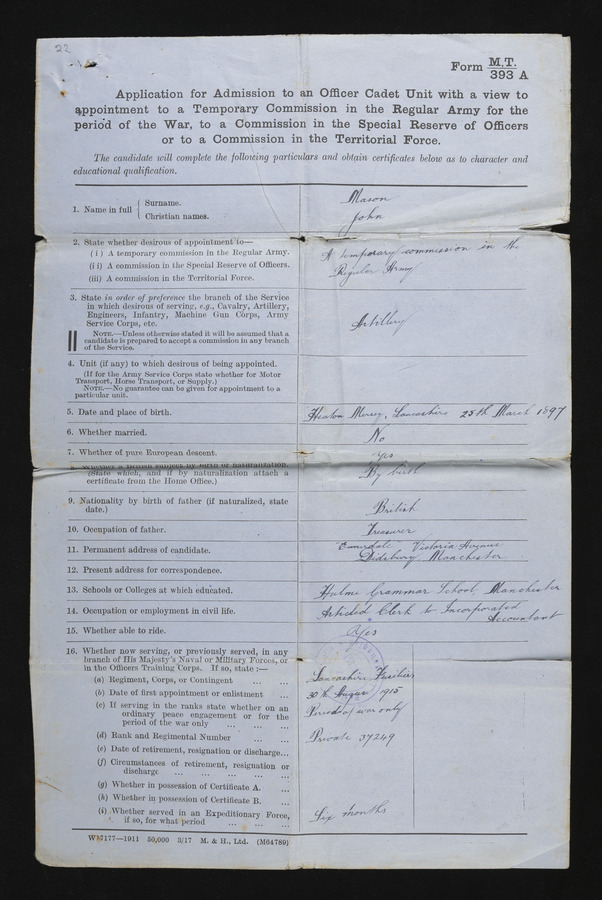 22
Form M.T. 393 A
Application for Admission to an Officer Cadet Unit with a view to
appointment to a Temporary Commission in the Regular Army for the
period of the War, to a Commission in the Special Reserve of Officers
or to a Commission in the Territorial Force.
The candidate will complete the following particulars and obtain certificates below as to character and
educational qualification.
1. Name in full { Surname. Mason
Christian names. John
2. State whether desirous of appointment to—
(i) A temporary commission in the Regular Army. A temporary commission in the
(ii) A commission in the Special Reserve of Officers. Regular Army
(iii) A commission in the Territorial Force.
3. State in order of preference the branch of the Service
in which desirous of serving, e.g., Cavalry, Artillery,
Engineers, Infantry, Machine Gun Corps, Army
Service Corps, etc. Artillery
NOTE.—Unless otherwise stated it will be assumed that a
candidate is prepared to accept a commission in any branch
of the Service.
4. Unit (if any) to which desirous of being appointed.
(If for the Army Service Corps state whether for Motor
Transport, Horse Transport, or Supply.)
NOTE.—No guarantee can be given for appointment to a
particular unit.
5. Date and place of birth. Heaton Mersey, Lancashire 25th March 1897
6. Whether married. No
7. Whether of pure European descent. Yes
8. Whether a British subject by birth or naturalization.
(State which, and if by naturalization attach a By birth
certificate from the Home Office.)
9. Nationality by birth of father (if naturalized, state
date.) British
10. Occupation of father. Treasurer
11. Permanent address of candidate. Victoria Avenue
Didsbury Manchester
12. Present address for correspondence.
13. Schools or Colleges at which educated. Hulme Grammar School, Manchester
14. Occupation or employment in civil life. Articled Clerk to Incorporated
Accountant
15. Whether able to ride. Yes
16. Whether now serving, or previously served, in any
branch of His Majesty's Naval or Military Forces, or
in the Officers Training Corps. If so, state :—
(a) Regiment, Corps, or Contingent ... ... Lancashire Fusiliers
(b) Date of first appointment or enlistment ... 30th August 1915
(c) If serving in the ranks state whether on an Period of war only
ordinary peace engagement or for the
period of the war only ... ...
(d) Rank and Regimental Number ... ... Private 37249
(e) Date of retirement, resignation or discharge...
(f) Circumstances of retirement, resignation or
discharge ... ... ... ... ...
(g) Whether in possession of Certificate A. ...
(h) Whether in possession of Certificate B. ...
(i) Whether served in an Expeditionary Force, Six months
if so, for what period ... ... ...
W3177—1911 50,000 3/17 M. & H., Ltd. (M64789)